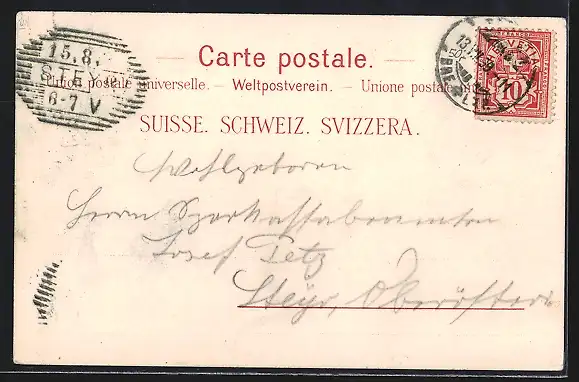 Carte postale.
Union postale universelle. – Weltpostverein. – Unione postale
SUISSE. SCHWEIZ. SVIZZERA.
15.8.
STEYR
6-7 V
FRANCO
HELVETIA
10
Wohlgeboren
Herrn Sparkassabeamten
Josef Petz
Steyr, Oberösterr.